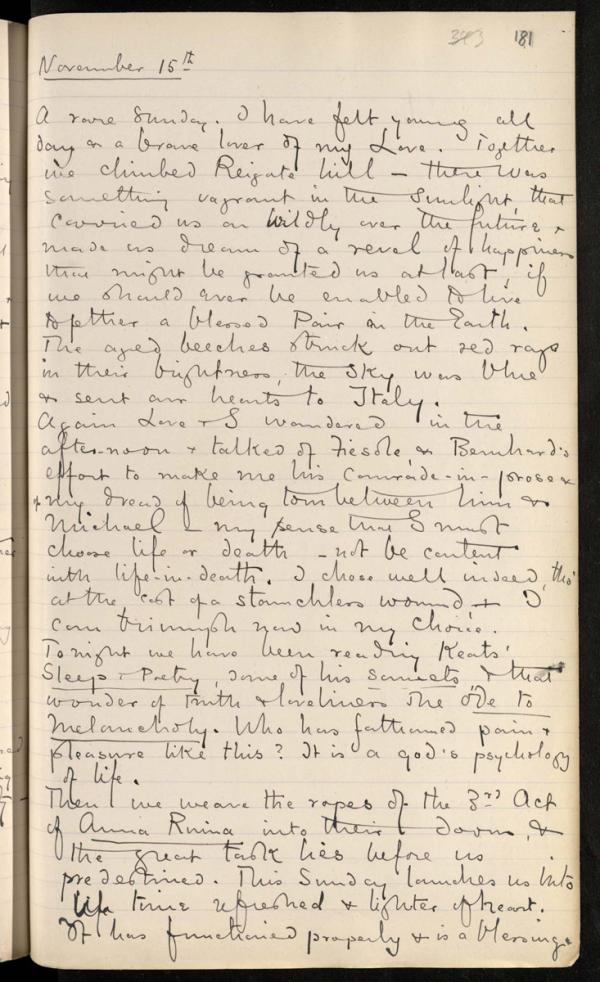 343 181
November 15th
A rare Sunday. I have felt young all
day as a brave lover of my Love. Together
we climbed Reigate hill – there was
something vagrant in the sunlight, that
carried us on wildly over the future &
made us dream of a revel of happiness
that might be granted us at last, if
we should ever be enabled to live
together a blessed Pair on the Earth.
The aged beeches struck out red rays
in their brightness, the sky was blue
& sent our hearts to Italy.
Again Love & I wandered in the
after-noon & talked of Fiesole, & Bernhard's
effort to make me his comrade-in-prose &
of my dread of being torn between him &
Michael – my sense that I must
choose life or death – not be content
with life-in-death. I chose well indeed, tho'
at the cost of a staunchless wound & I
can triumph now in my choice.
Tonight we have been reading Keats'
Sleep & Poetry, some of his sonnets & that
wonder of truth & loveliness the Ode to
Melancholy. Who has fathomed pain &
pleasure like this? It is a god's psychology
of life.
Then we weave the ropes of the 3rd Act
of Anna Ruina into their doom, &
the great task lies before us
predestined. This Sunday launches us into
time refreshed & lighter of heart.
It has functioned properly & is a blessing.